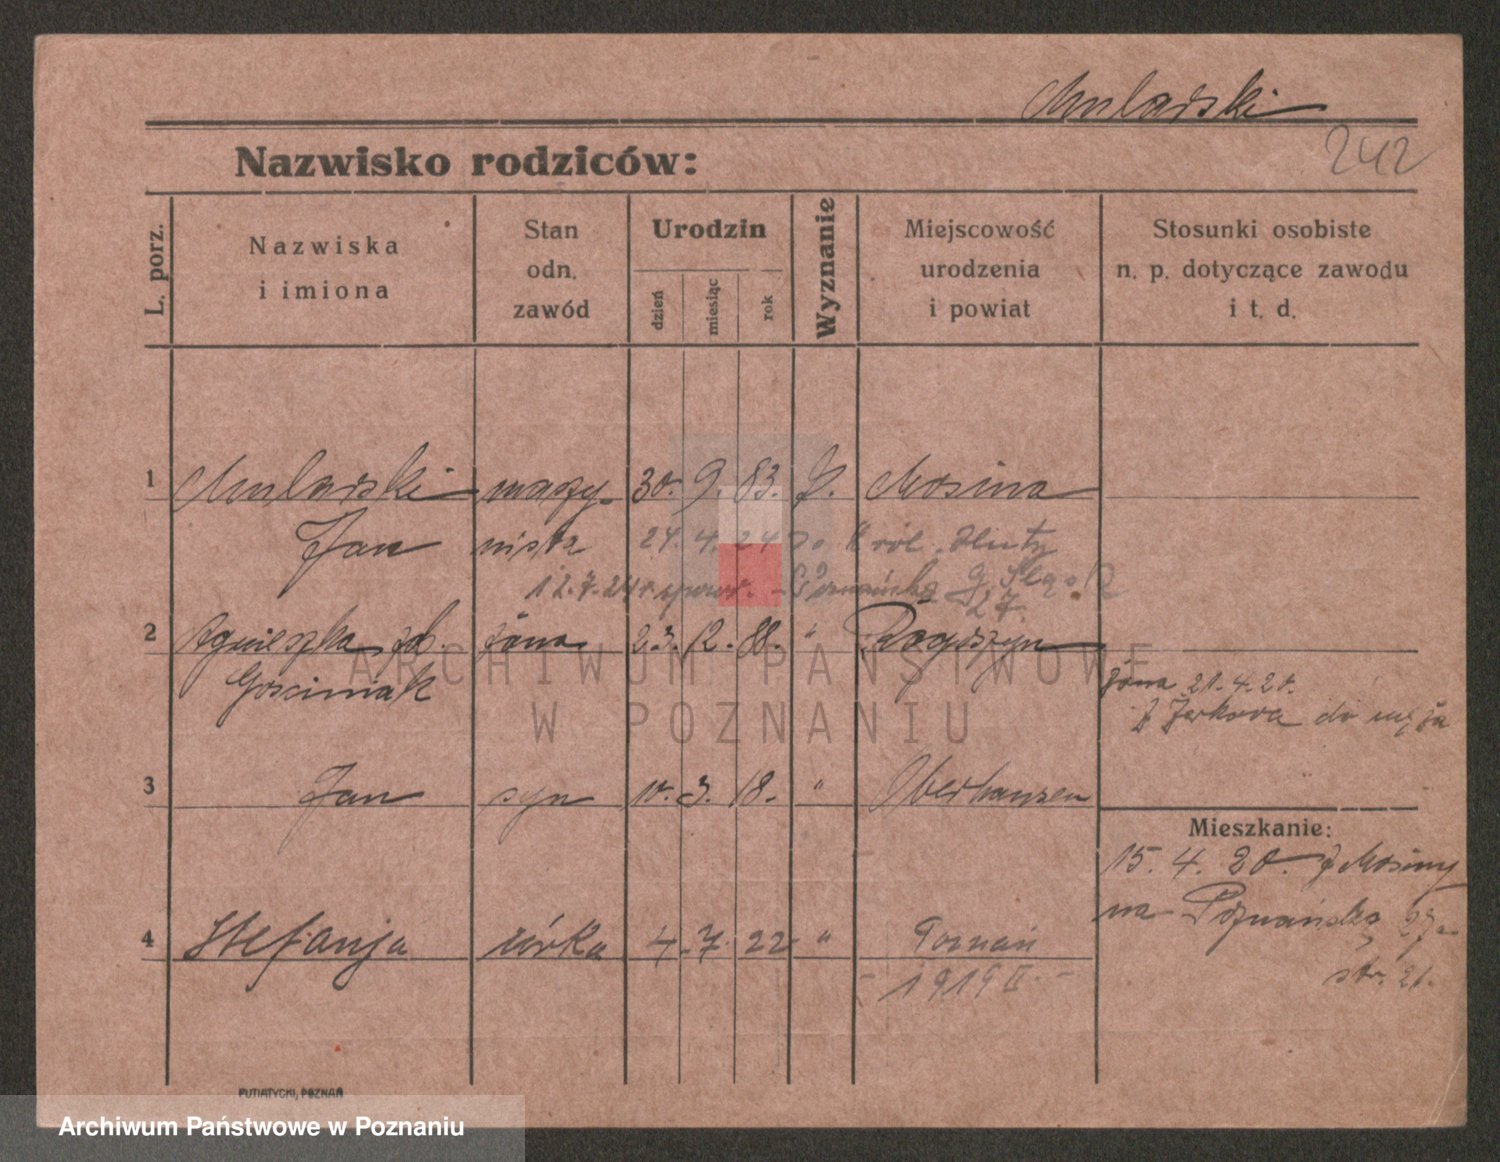 Mularski
242
Nazwisko rodziców:
L. porz.
Nazwiska
i imiona
Stan
odn.
zawód
Urodzin
dzień
miesiąc
rok
Wyznanie
Miejscowość
urodzenia
i powiat
Stosunki osobiste
n. p. dotyczące zawodu
i t. d.
1 Mularski maszy- 30. 9. 83. Mosina
Jan nista 24. 4. 24 do Król. Huty
12.7.24 r. powr. - Poznańska G. Śląsk
27.
2 Agnieszka żona 23. 12. 88. " Rogoszyn
Gościniak
żona 21.4.20.
z Żerkowa do męża
3 Jan syn 10. 3. 18. " Oberhausen
Mieszkanie:
15. 4. 20. z Mosiny
na Poznańska 27
str. 21.
4 Stefanja córka 4. 7. 22 " Poznań
- 1919 II. -
PUTIATYCKI, POZNAŃ
ARCHIWUM PAŃSTWOWE
W POZNANIU
Archiwum Państwowe w Poznaniu